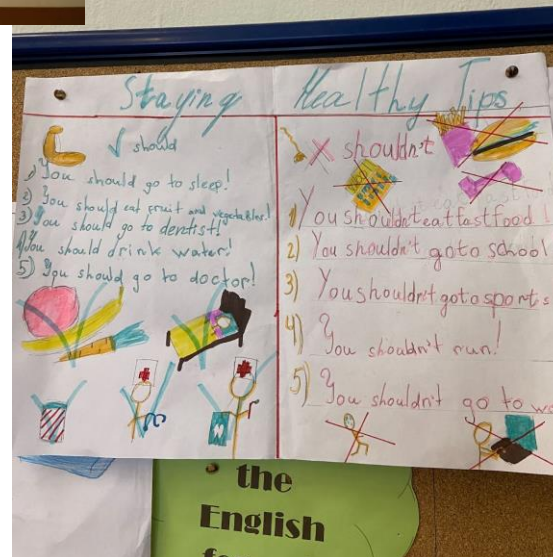 Staying Healthy Tips
✓ should
1) You should go to sleep!
2) You should eat fruit and vegetables!
3) You should go to dentist!
4) You should drink water!
5) You should go to doctor!
X shouldn't
1) You shouldn't eat fast food!
2) You shouldn't go to school
3) You shouldn't go to sports
4) You shouldn't run!
5) You shouldn't go to
the
English